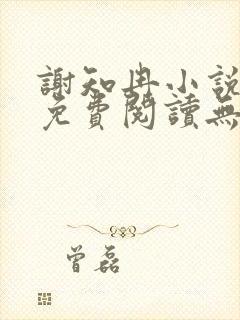 謝知冉小說
免費閱讀無
曾磊